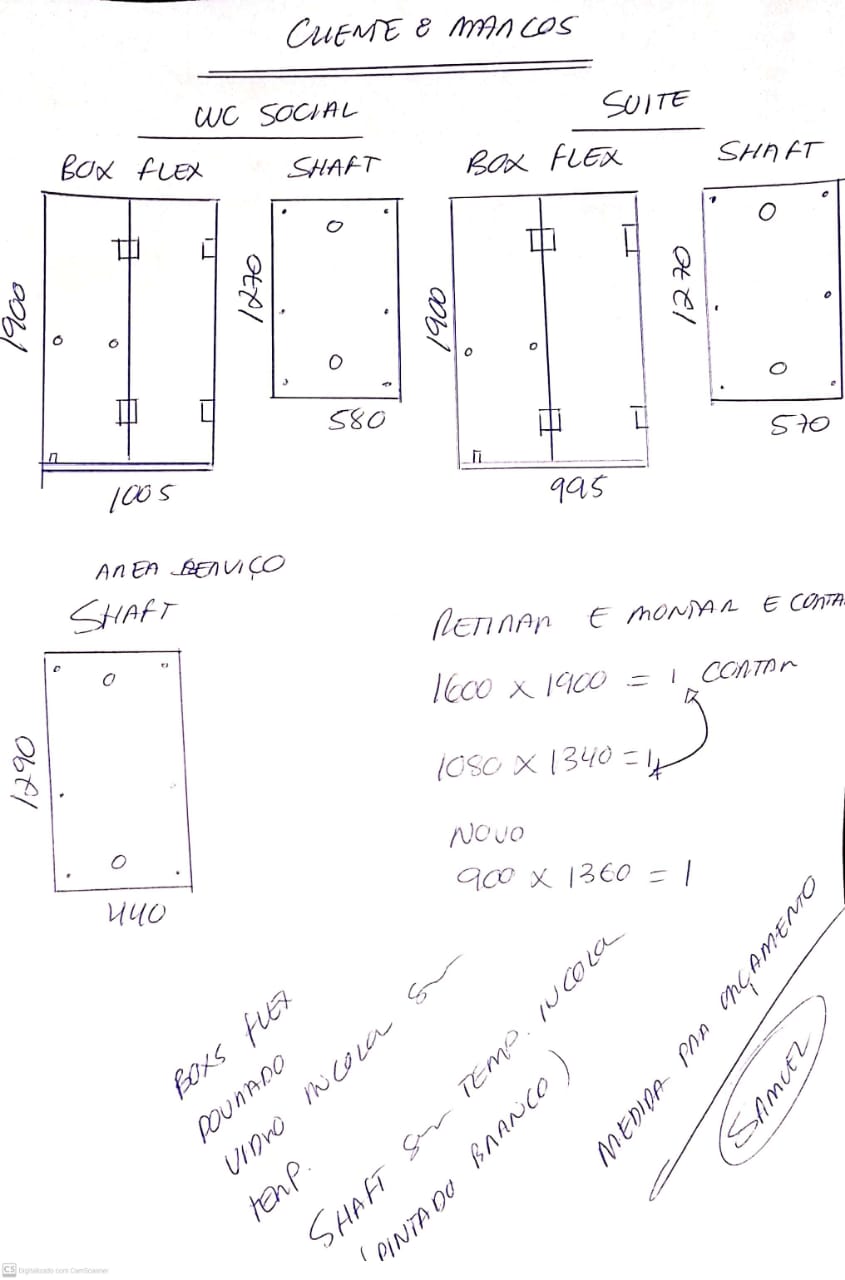 CLIENTE 8 MARCOS
WC SOCIAL
BOX FLEX
SHAFT
1900
1270
1005
580
SUITE
BOX FLEX
SHAFT
1900
1270
995
570
AREA SERVIÇO
SHAFT
1290
440
RETIRAR E MONTAR E CORTA
1600 X 1900 = 1 CORTAR
1080 X 1340 = 1
NOVO
900 X 1360 = 1
BOXS FLEX
DOURADO
VIDRO INCOLOR 8m
TEMP.
SHAFT 8m TEMP. INCOLOR
(PINTADO BRANCO)
MEDIDA PRA ORÇAMENTO
SAMUEL
CS Digitalizado com CamScanner